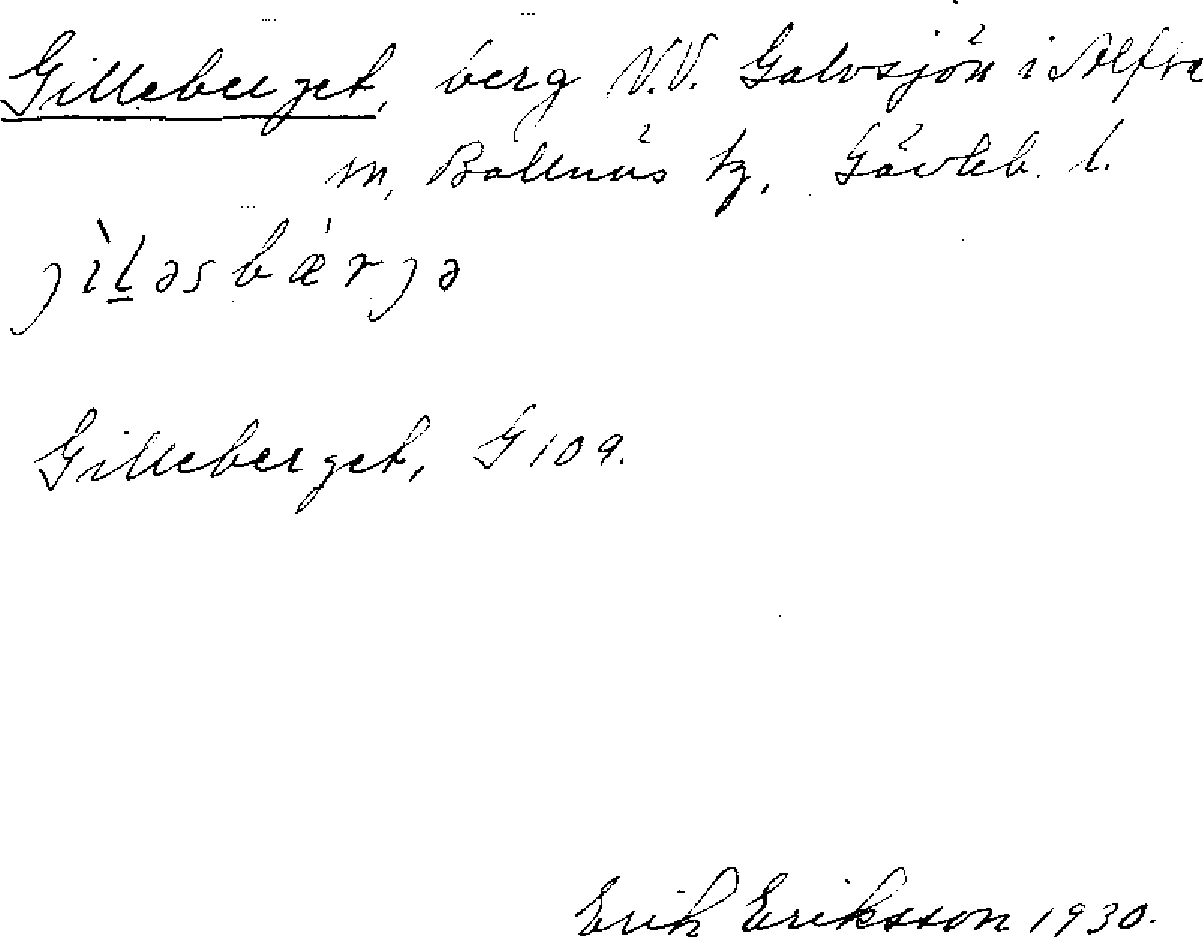 Gilleberget, berg V.V. Galvsjön i Alfta
m, Bollnäs tg, Gävleb. l.
ȷìl̲əsbærȷə
Gilleberget, G 109.
Erik Eriksson 1930.